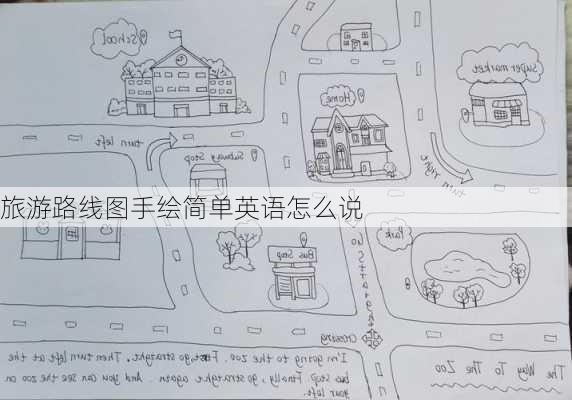 School
Supermarket
Home
turn left
Subway Stop
turn right
旅游路线图手绘简单英语怎么说
Park
Go Straight
Bus Stop
Crossing
I'm going to the zoo. First, go straight. Then turn left at the
bus stop. Finally, go straight again. And you can see the zoo on
your left.
The Way To The Zoo